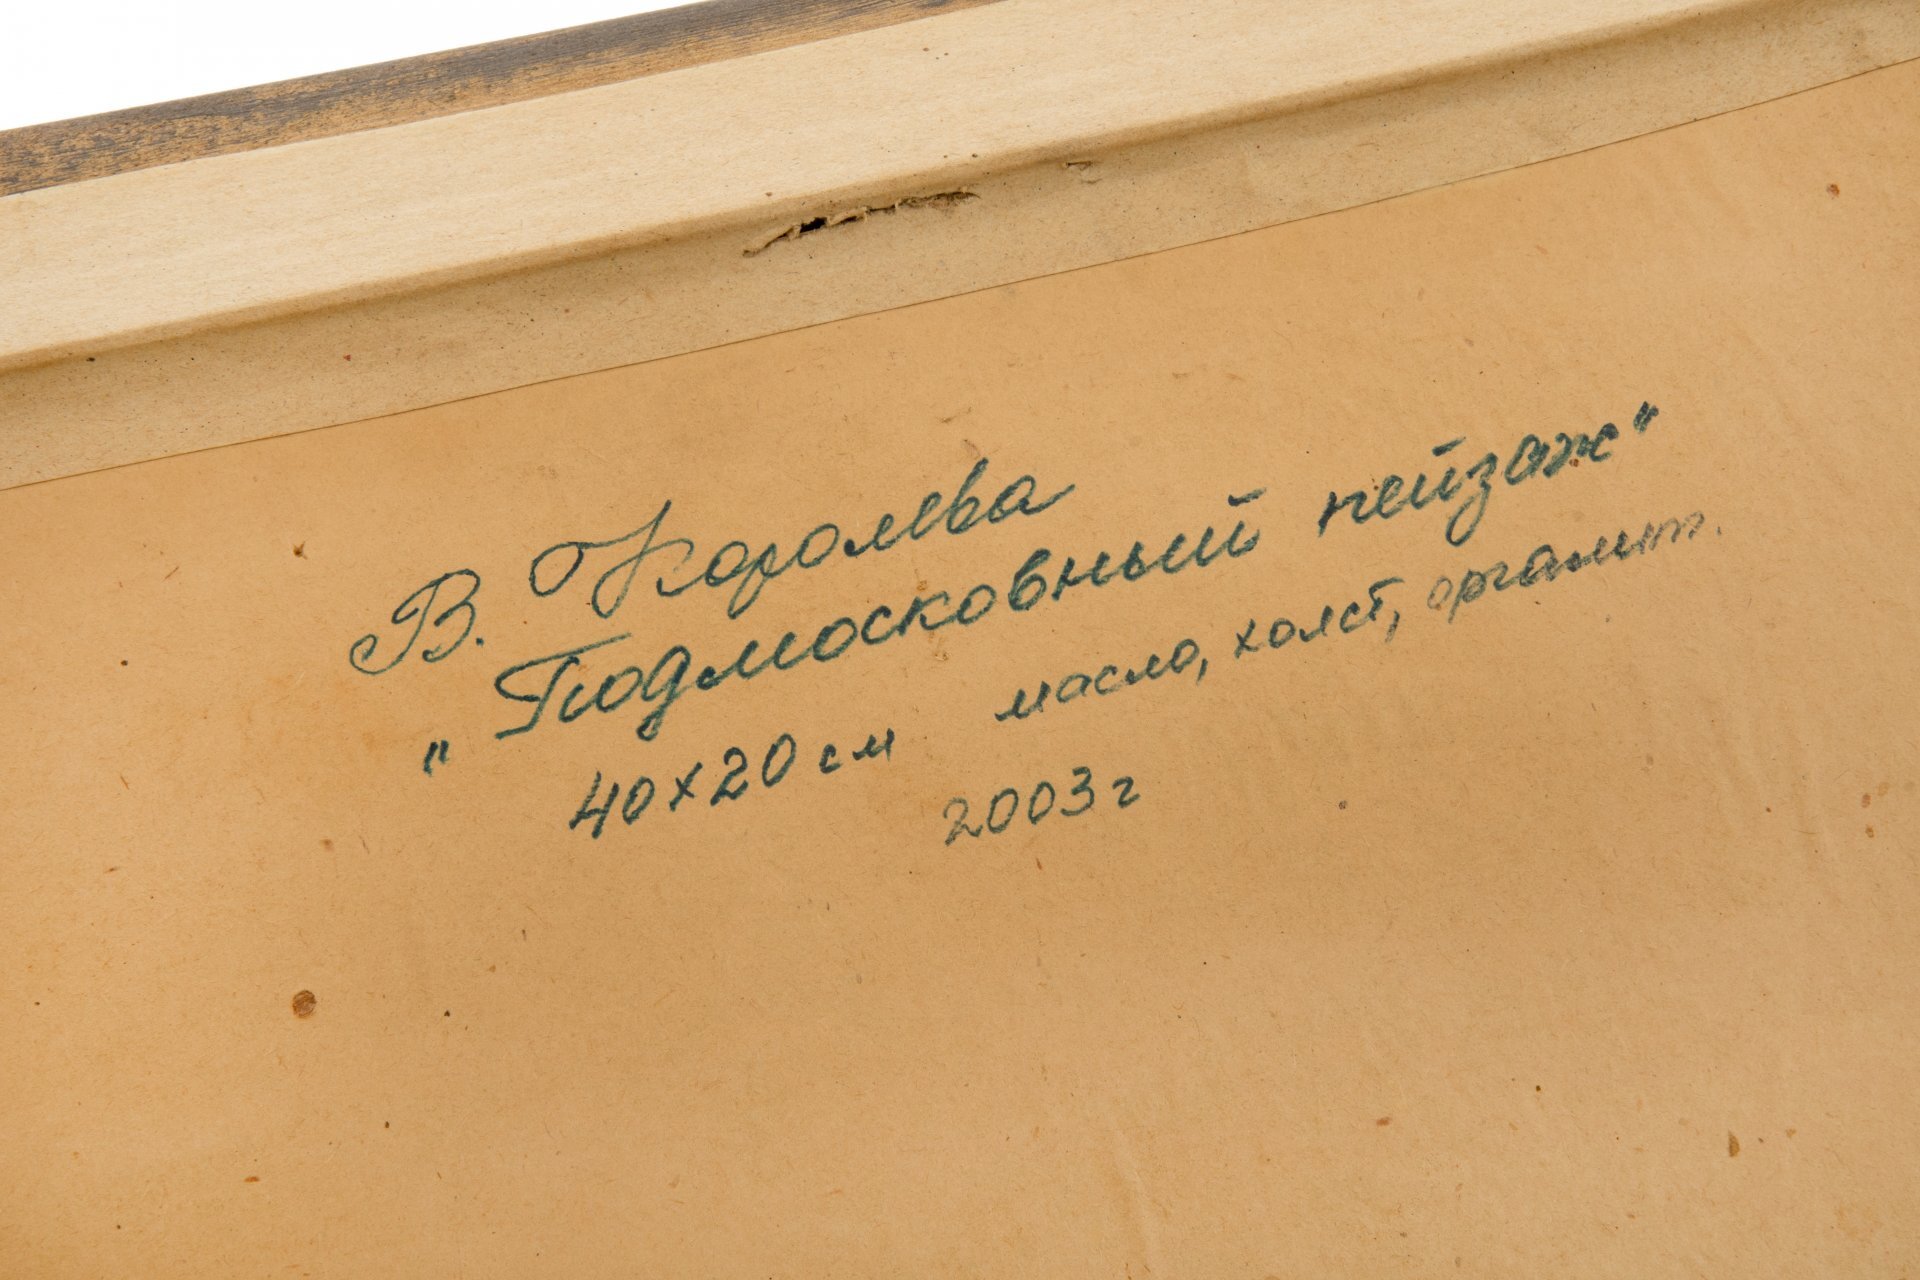 В. Королёва
„Подмосковный пейзаж“
40x20 см масло, холст, оргалит.
2003 г